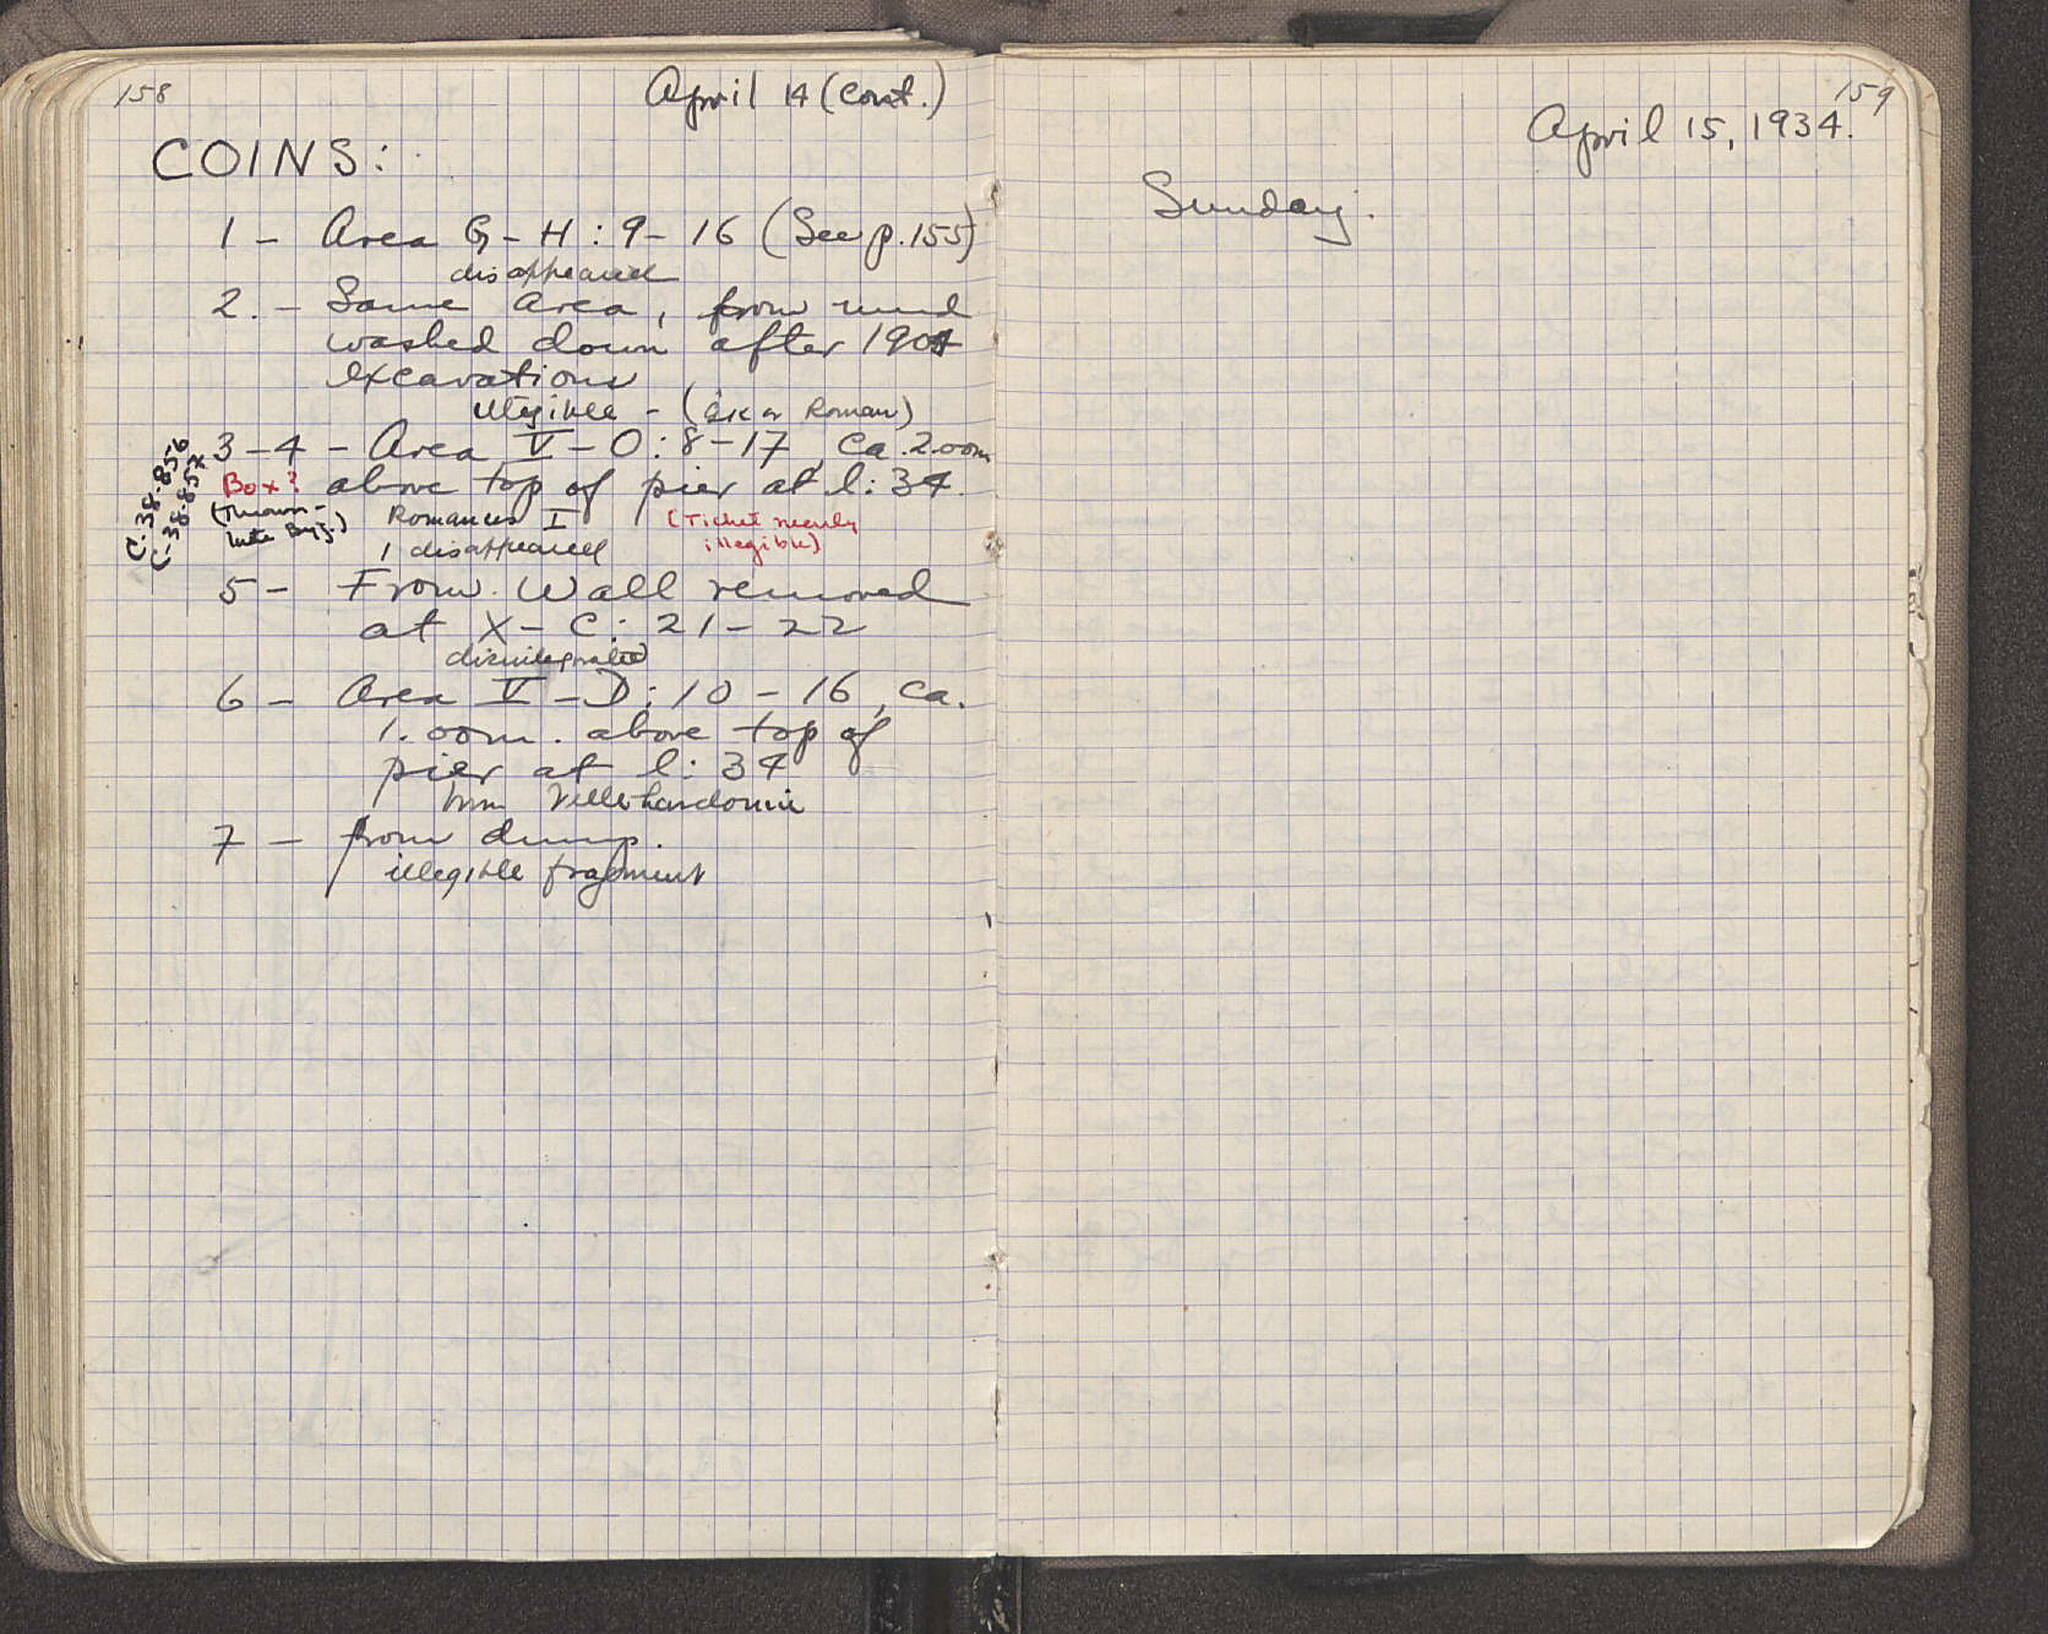 158
April 14 (cont.)
COINS:
1 - Area G - H : 9 - 16 (See p. 155)
disappeared
2. - Same area, from mud
washed down after 1904
excavations
illegible - (Gk or Roman)
3 - 4 - Area V - O : 8 - 17, ca. 2.00m
Box? above top of pier at l : 34.
(Thrown - Romanus I (Ticket nearly
late Byz.) 1 disappeared illegible)
C-38-856
C-38-857
5 - From wall removed
at X - C : 21 - 22
disintegrated
6 - Area V - D : 10 - 16, ca.
1.00m. above top of
pier at l : 34
Wm Villehardouin
7 - from dump.
illegible fragment
159
April 15, 1934.
Sunday.